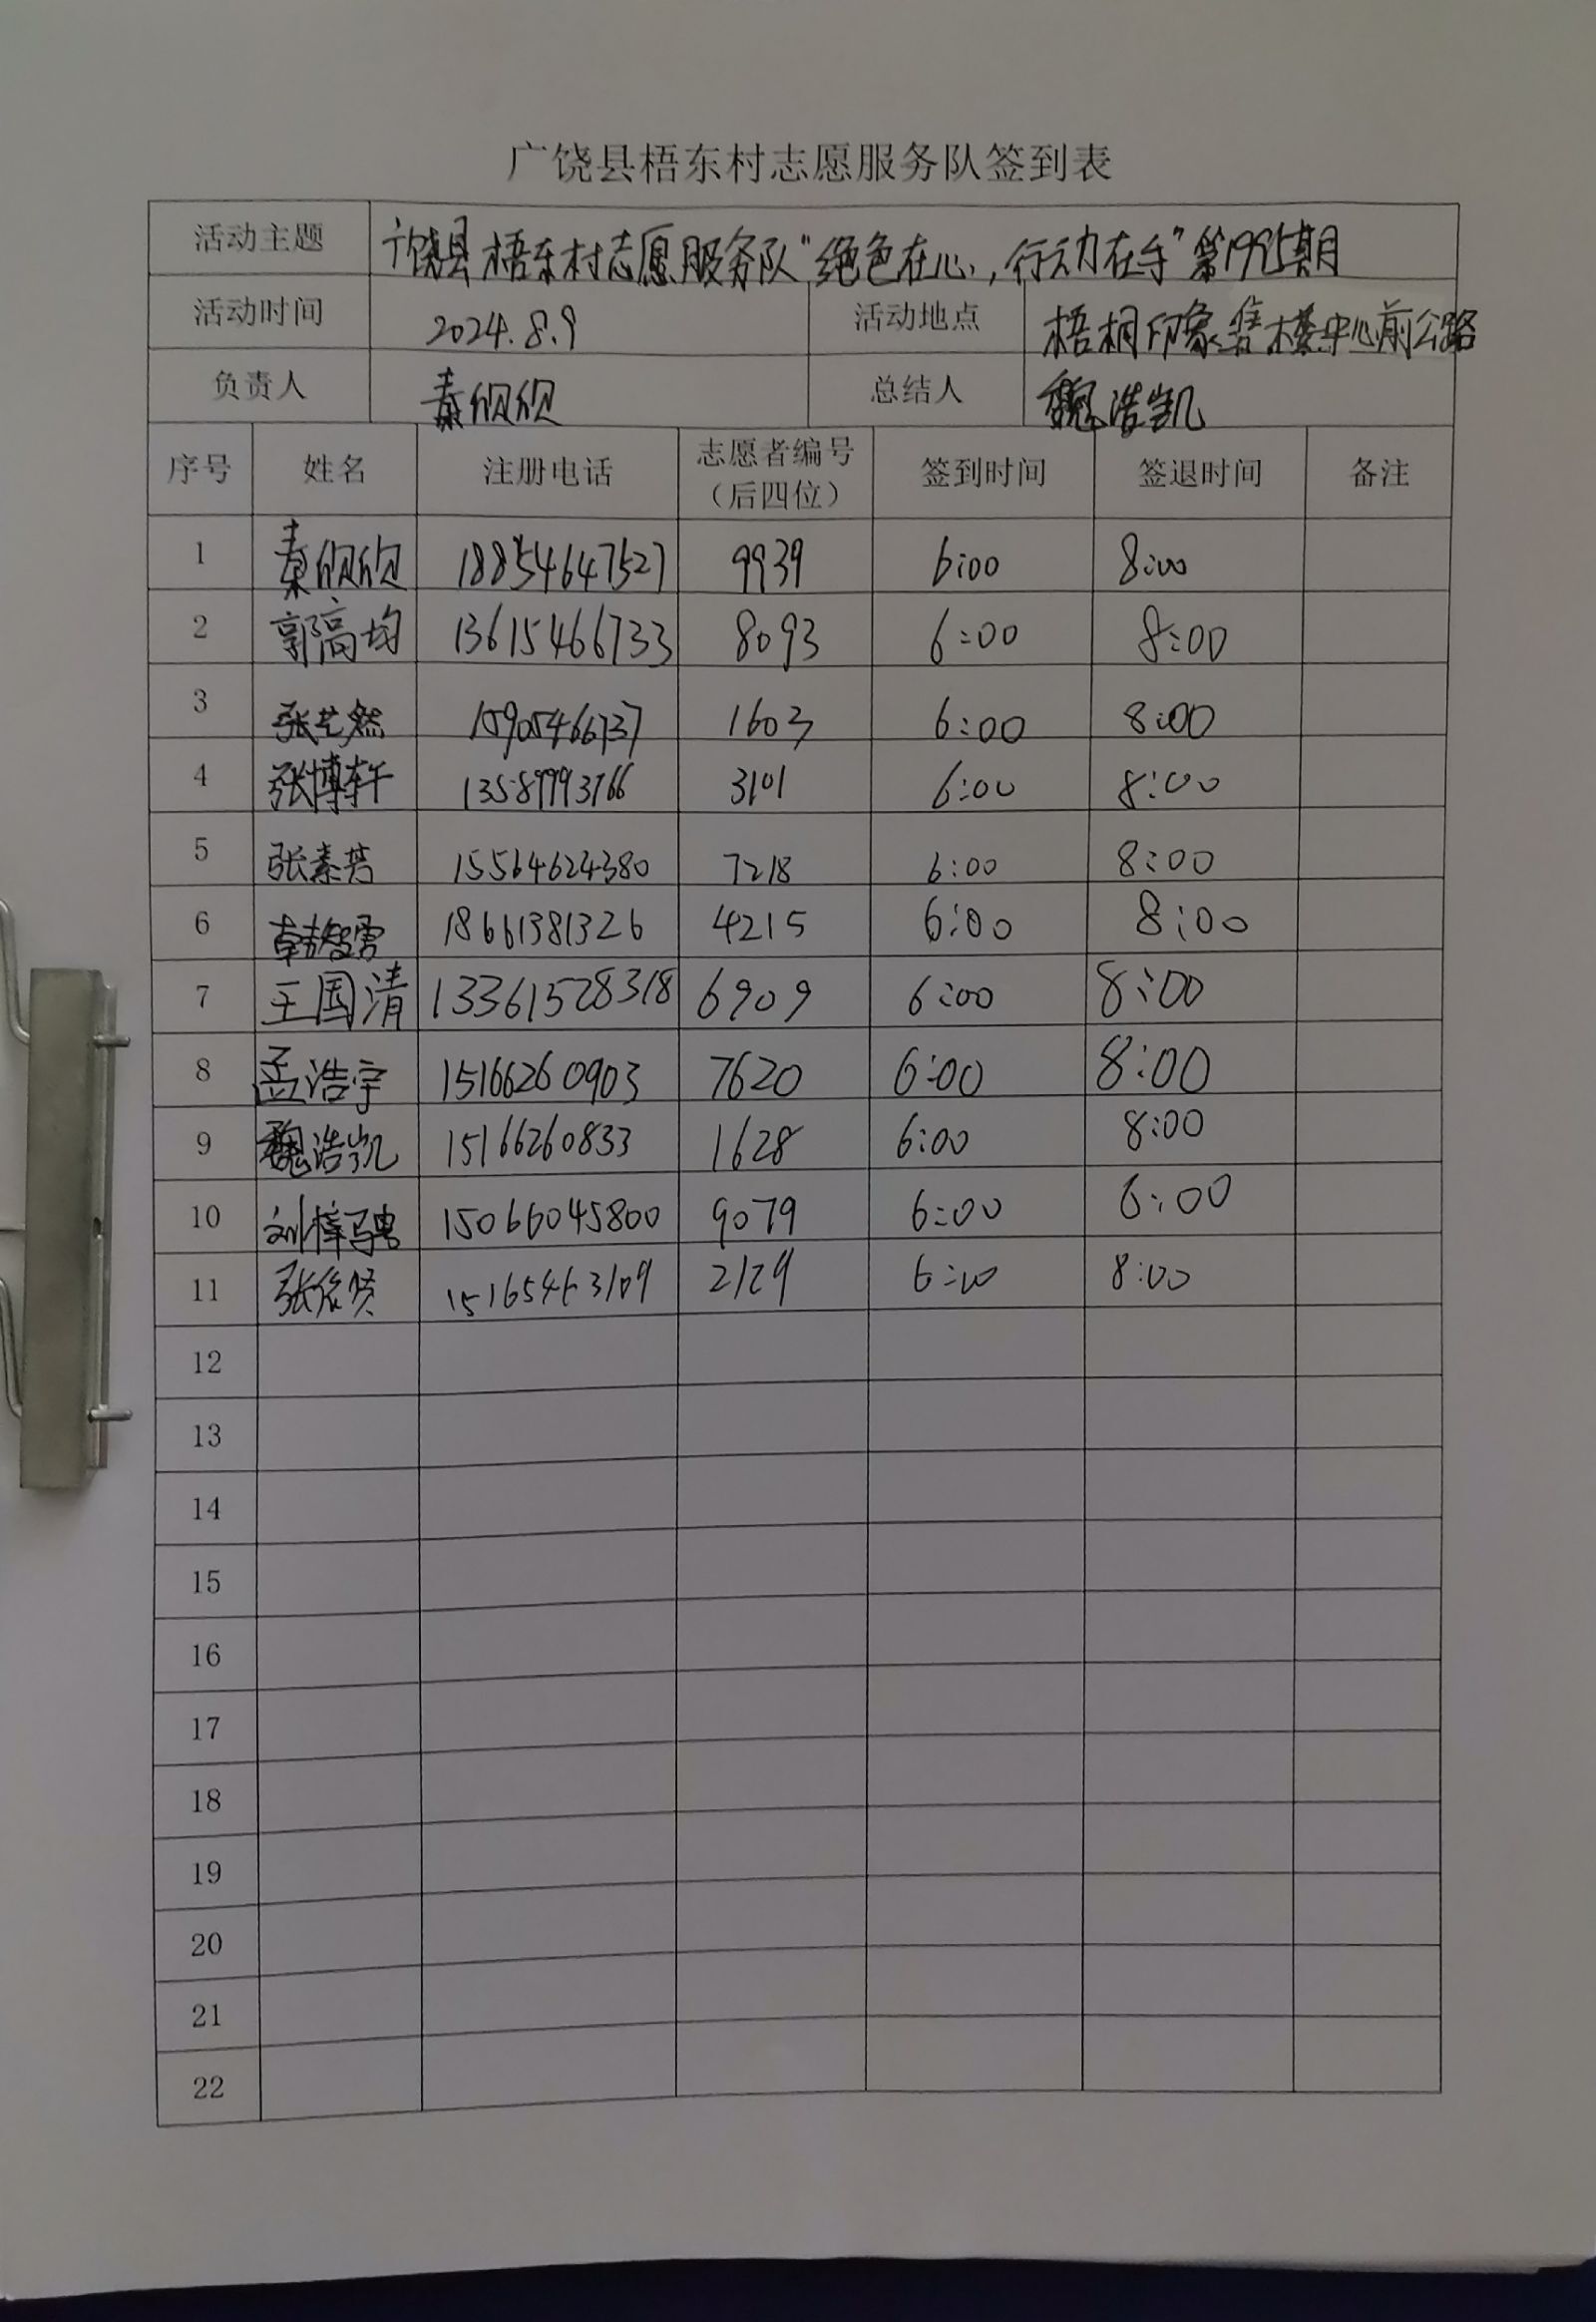 广饶县梧东村志愿服务队签到表
活动主题 广饶县梧东村志愿服务队“绝色在心,行动在手”第1995期
活动时间 2024.8.9 活动地点 梧桐印象售楼中心前公路
负责人 秦欣欣 总结人 魏浩凯
序号 姓名 注册电话 志愿者编号(后四位) 签到时间 签退时间 备注
1 秦欣欣 18854647527 9939 6:00 8:00
2 郭高均 13615466733 8093 6:00 8:00
3 张艺然 15905466737 1603 6:00 8:00
4 张博轩 13589993766 3101 6:00 8:00
5 张素芳 15564624380 7218 6:00 8:00
6 韩智雪 18661381326 4215 6:00 8:00
7 王国清 13361528318 6909 6:00 8:00
8 孟浩宇 15166260903 7620 6:00 8:00
9 魏浩凯 15166260833 1628 6:00 8:00
10 刘梓骋 15066045800 9079 6:00 6:00
11 15165463109 2129 6:00 8:00
12
13
14
15
16
17
18
19
20
21
22